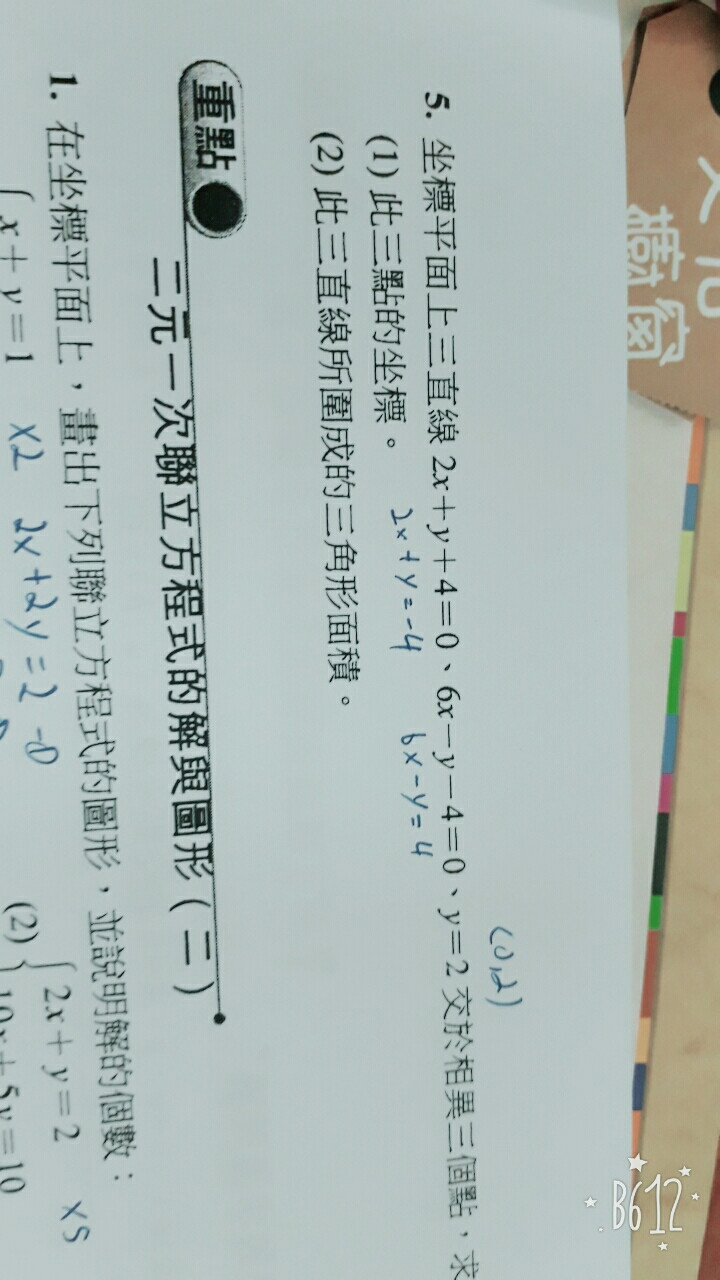 5. 坐標平面上三直線 2x+y+4=0、6x-y-4=0、y=2 交於相異三個點,求
(0,2)
2x+y=-4 6x-y=4
(1) 此三點的坐標。
(2) 此三直線所圍成的三角形面積。
重點
二元一次聯立方程式的解與圖形(二)
1. 在坐標平面上,畫出下列聯立方程式的圖形,並說明解的個數:
x+y=1 x2 2x+2y=2
(2) 2x+y=2 x5
10x+5y=10
B612